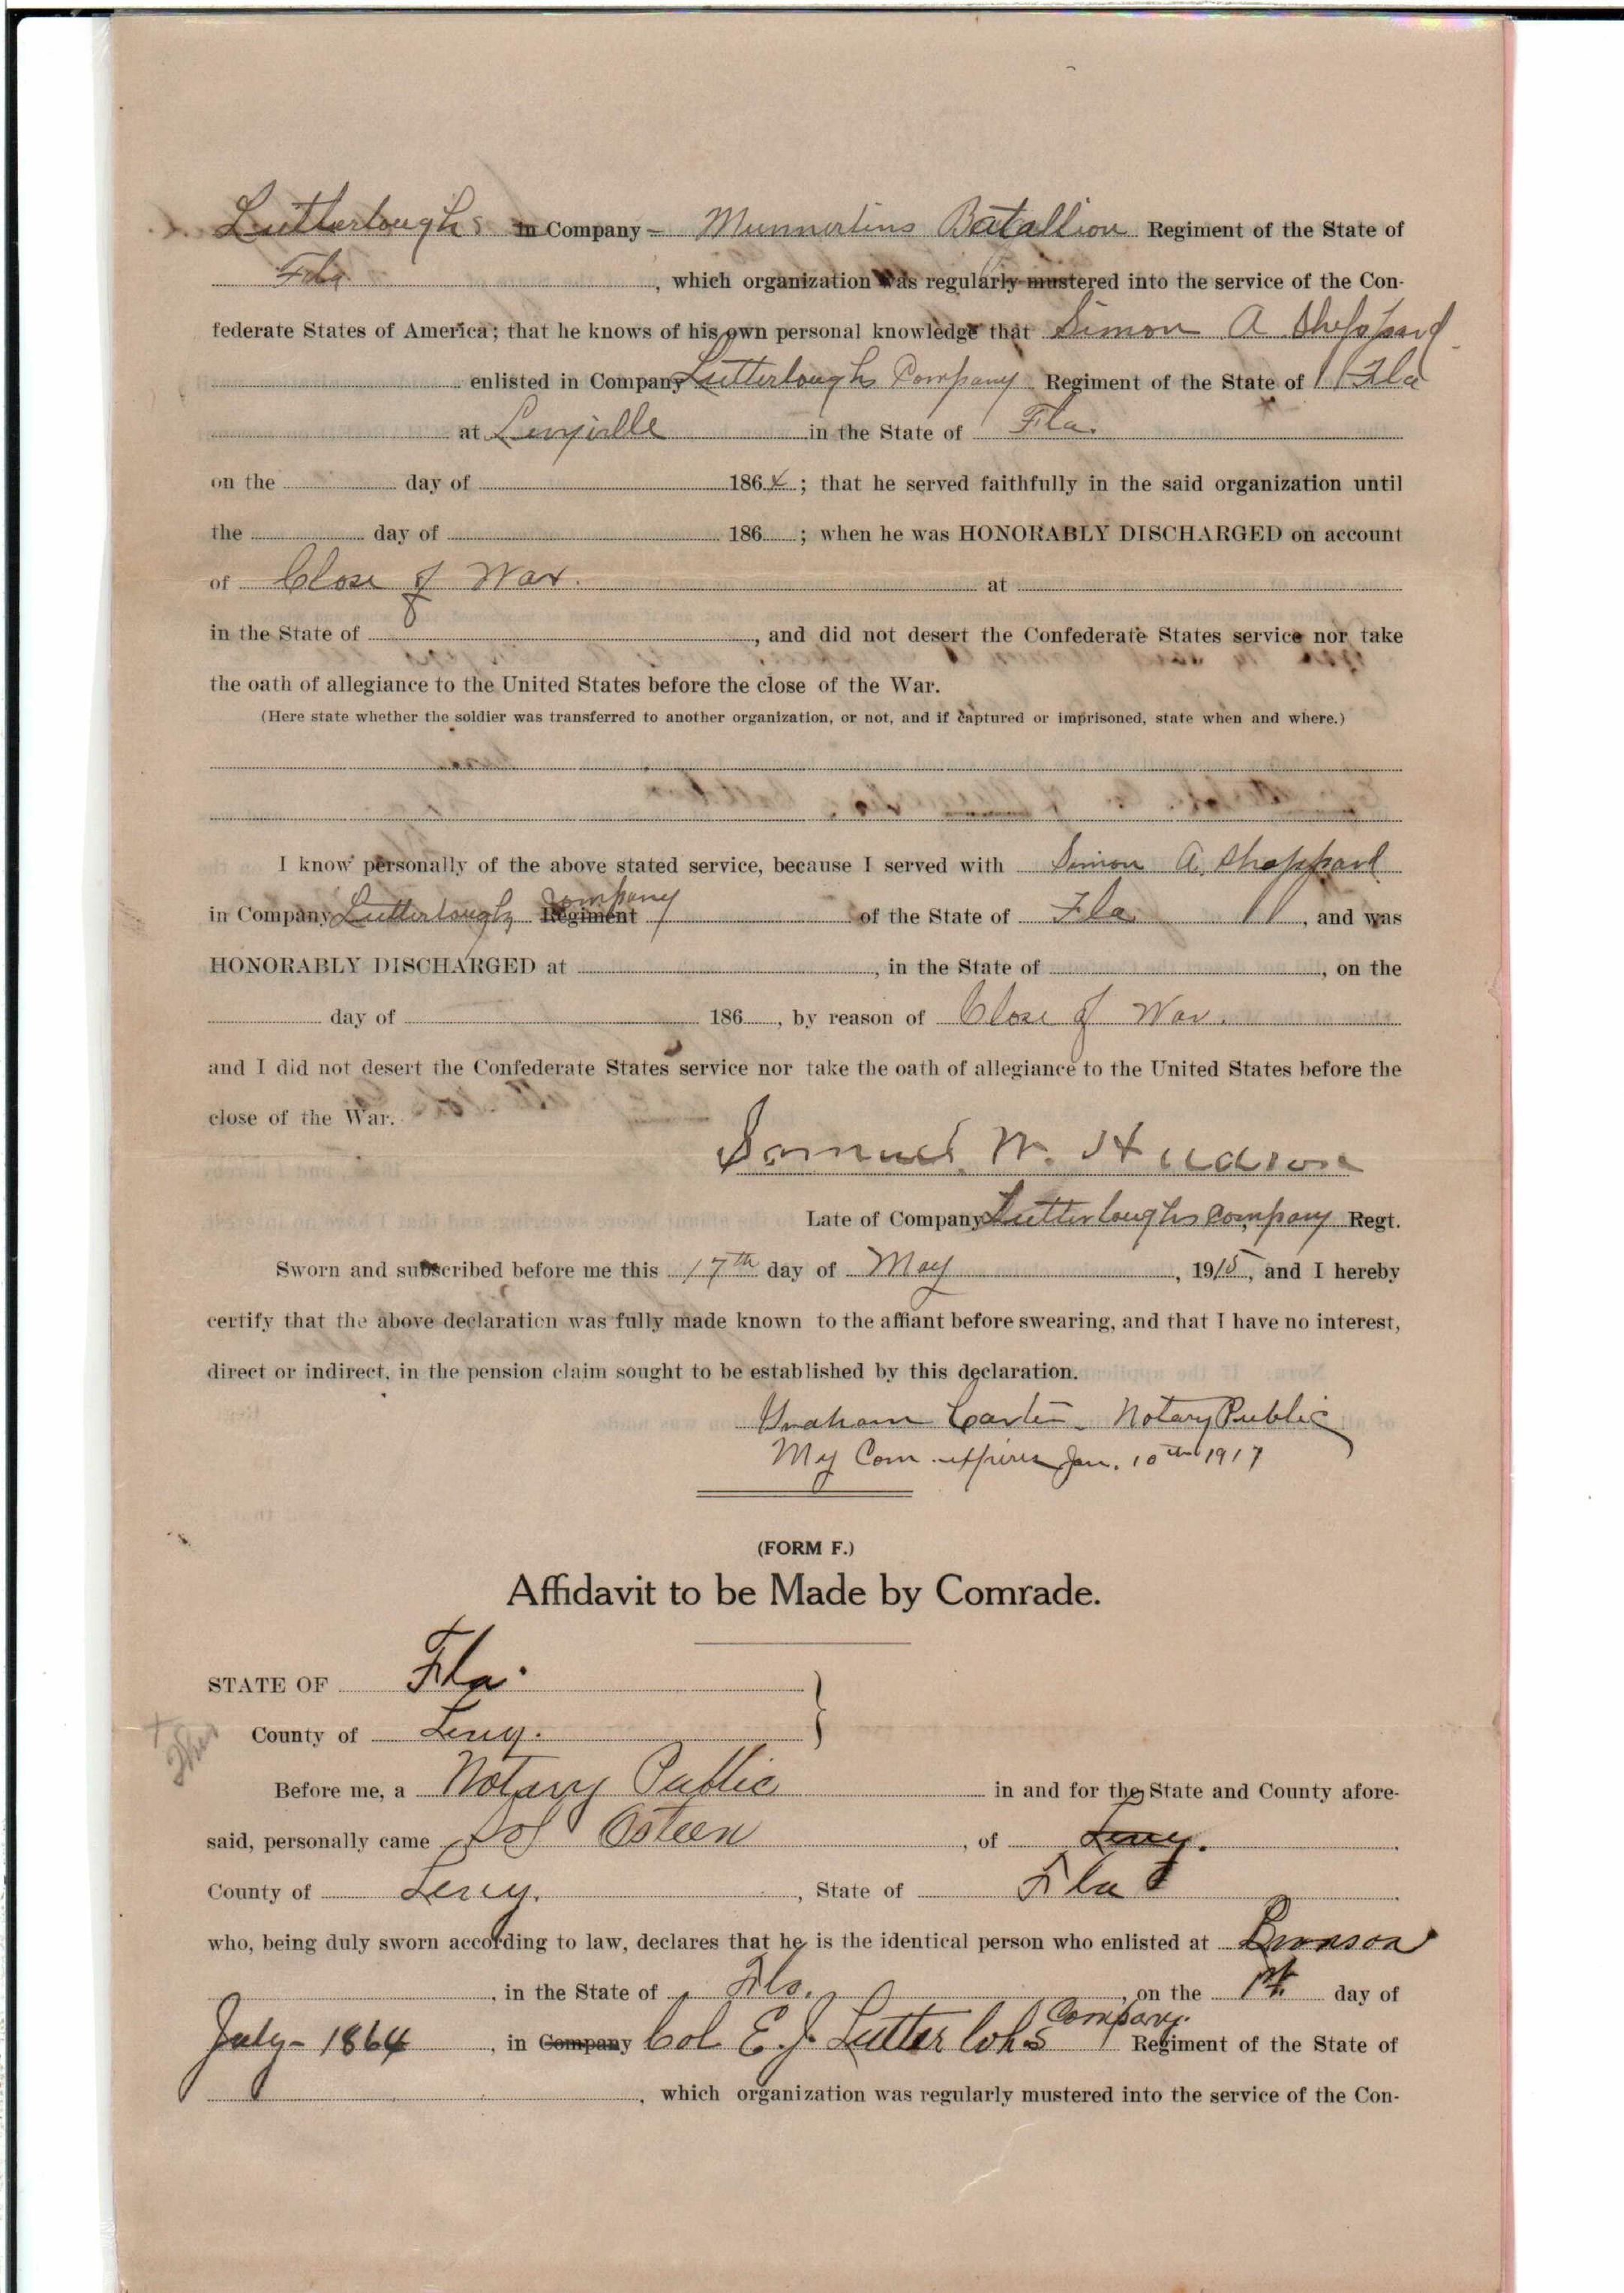 Lutterloughs in Company – Munnerlins Batallion Regiment of the State of
Fla , which organization was regularly mustered into the service of the Con-
federate States of America; that he knows of his own personal knowledge that Simon A Sheppard
enlisted in Company Lutterloughs Company Regiment of the State of Fla
at Levyville in the State of Fla.
on the day of 1864 ; that he served faithfully in the said organization until
the day of 186 ; when he was HONORABLY DISCHARGED on account
of Close of War. at
in the State of , and did not desert the Confederate States service nor take
the oath of allegiance to the United States before the close of the War.
(Here state whether the soldier was transferred to another organization, or not, and if captured or imprisoned, state when and where.)
I know personally of the above stated service, because I served with Simon A. Sheppard
in Company Lutterloughs Regiment Company of the State of Fla. , and was
HONORABLY DISCHARGED at , in the State of , on the
day of 186 , by reason of Close of War.
and I did not desert the Confederate States service nor take the oath of allegiance to the United States before the
close of the War.
Samuel W. Hudson
Late of Company Lutterloughs Company Regt.
Sworn and subscribed before me this 17th day of May , 1915, and I hereby
certify that the above declaration was fully made known to the affiant before swearing, and that I have no interest,
direct or indirect, in the pension claim sought to be established by this declaration.
Graham Carter Notary Public
My Com. expires Jan. 10th 1917
(FORM F.)
Affidavit to be Made by Comrade.
STATE OF Fla.
County of Levy.
Before me, a Notary Public in and for the State and County afore-
said, personally came Sol Osteen , of Levy.
County of Levy. , State of Fla
who, being duly sworn according to law, declares that he is the identical person who enlisted at Bronson
, in the State of Fla. , on the 1st day of
July – 1864 , in Company Col E. J. Lutterlohs Company. Regiment of the State of
, which organization was regularly mustered into the service of the Con-